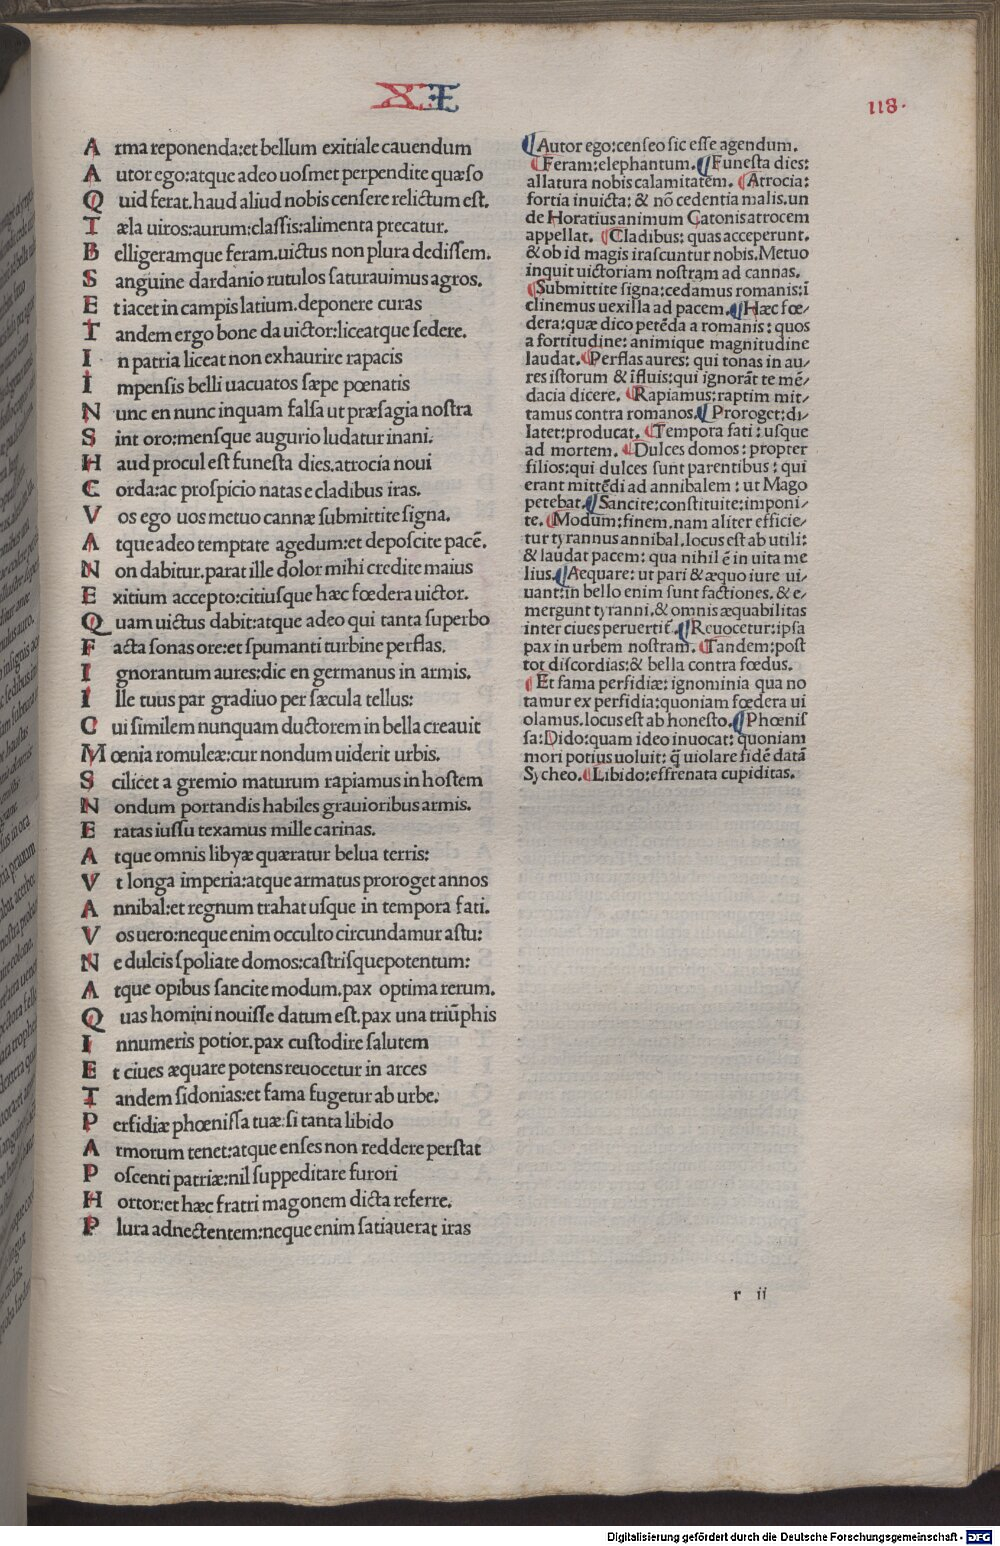 XI
118.
Arma reponenda:et bellum exitiale cauendum
Autor ego:atque adeo uosmet perpendite quæso
Quid ferat.haud aliud nobis censere relictum est.
Tæla uiros:aurum:classis:alimenta precatur.
Belligeramque feram.uictus non plura dedissem.
Sanguine dardanio rutulos saturauimus agros.
Et iacet in campis latium.deponere curas
Tandem ergo bone da uictor:liceatque sedere.
In patria liceat non exhaurire rapacis
Impensis belli uacuatos sæpe pœnatis
Nunc en nunc inquam falsa ut præsagia nostra
Sint oro:mensque augurio ludatur inani.
Haud procul est funesta dies.atrocia noui
Corda:ac prospicio natas e cladibus iras.
Vos ego uos metuo cannæ submittite signa.
Atque adeo temptate agedum:et deposcite pacē.
Non dabitur.parat ille dolor mihi credite maius
Exitium accepto:citiusque hæc fœdera uictor.
Quam uictus dabit:atque adeo qui tanta superbo
Facta sonas ore:et spumanti turbine perflas.
Ignorantum aures:dic en germanus in armis.
Ille tuus par gradiuo per sæcula tellus:
Cui similem nunquam ductorem in bella creauit
Mœnia romuleæ:cur nondum uiderit urbis.
Scilicet a gremio maturum rapiamus in hostem
Nondum portandis habiles grauioribus armis.
Eratas iussu texamus mille carinas.
Atque omnis libyæ quæratur belua terris:
Vt longa imperia:atque armatus proroget annos
Annibal:et regnum trahat usque in tempora fati.
Vos uero:neque enim occulto circundamur astu:
Ne dulcis spoliate domos:castrisquepotentum:
Atque opibus sancite modum.pax optima rerum.
Quas homini nouisse datum est.pax una triūphis
Innumeris potior.pax custodire salutem
Et ciues æquare potens reuocetur in arces
Tandem sidonias:et fama fugetur ab urbe.
Perfidiæ phœnissa tuæ:si tanta libido
Armorum tenet:atque enses non reddere perstat
Poscenti patriæ:nil suppeditare furori
Hortor:et hæc fratri magonem dicta referre.
Plura adnectentem:neque enim satiauerat iras
Autor ego:censeo sic esse agendum.
Feram:elephantum. Funesta dies:
allatura nobis calamitatem. Atrocia:
fortia inuicta: & nō cedentia malis.un
de Horatius animum Catonis atrocem
appellat. Cladibus: quas acceperunt.
& ob id magis irascuntur nobis.Metuo
inquit uictoriam nostram ad cannas.
Submittite signa:cedamus romanis:ī
clinemus uexilla ad pacem. Hæc fœ-
dera:quæ dico petēda a romanis: quos
a fortitudine: animique magnitudine
laudat. Perflas aures: qui tonas in au-
res istorum & īfluis:qui ignorāt te mē-
dacia dicere. Rapiamus:raptim mit-
tamus contra romanos. Proroget:di-
latet:producat. Tempora fati: usque
ad mortem. Dulces domos: propter
filios:qui dulces sunt parentibus: qui
erant mittēdi ad annibalem: ut Mago
petebat. Sancite:constituite:imponi-
te. Modum:finem.nam aliter efficie-
tur tyrannus annibal.locus est ab utili:
& laudat pacem: qua nihil ē in uita me
lius. Aequare: ut pari & æquo iure ui-
uant:in bello enim sunt factiones. & e-
mergunt tyranni.& omnis æquabilitas
inter ciues peruertit̄. Reuocetur:ipsa
pax in urbem nostram. Tandem:post
tot discordias:& bella contra fœdus.
Et fama perfidiæ: ignominia qua no
tamur ex perfidia:quoniam fœdera ui
olamus.locus est ab honesto. Phœnis
sa:Dido:quam ideo inuocat: quoniam
mori potius uoluit: q̄ uiolare fidē datā
Sycheo. Libido:effrenata cupiditas.
r ii
Digitalisierung gefördert durch die Deutsche Forschungsgemeinschaft - DFG